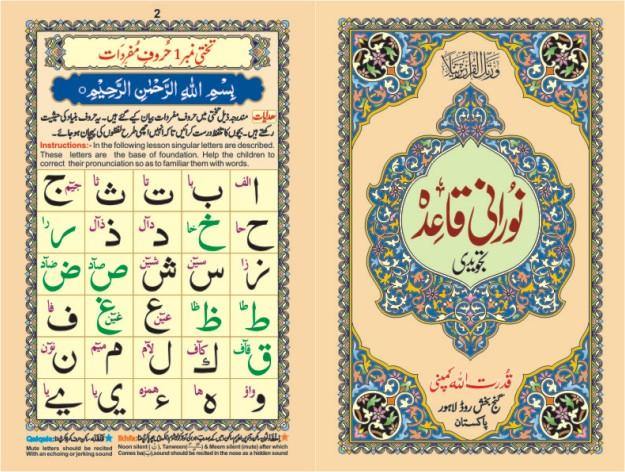 وَرَتِّلِ الْقُرْاٰنَ تَرْتِيْلًا
نُورانی قاعده
تجویدی
قدرت اللہ کمپنی
گنج بخش روڈ لاہور
پاکستان
2
تختی نمبر 1 حُروفِ مُفرِدَات
بِسْمِ اللهِ الرَّحْمٰنِ الرَّحِيْمِ
ہدایات: مندرجہ ذیل تختی میں حروف مفردات بیان کیے گئے ہیں۔ یہ حروف بنیاد کی حیثیت
رکھتے ہیں۔ بچوں کا تلفظ درست کرائیں تاکہ انہیں اچھی طرح لفظوں کی پہچان ہو جائے۔
Instructions:- In the following lesson singular letters are described.
These letters are the base of foundation. Help the children to
correct their pronunciation so as to familiar them with words.
ا الف ب با ت تا ث ثا ج جیٓم
ح حا خ خا د داٰل ذ ذاٰل ر را
ز زا س سیٓن ش شیٓن ص صآد ض ضآد
ط طا ظ ظا ع عیٓن غ غیٓن ف فا
ق قآف ك كآف ل لآم م میٓم ن نوٓن
و واؤ ه ها ء همزه ي يا ے یا
Qalqala:
Mute letters should be recited
With an echoing or jerking sound
Ikhfa:
Noon silent (نْ), Tanween & Meem silent (mute) after which
Comes ba(ب) sound should be recited in the nose as a hidden sound